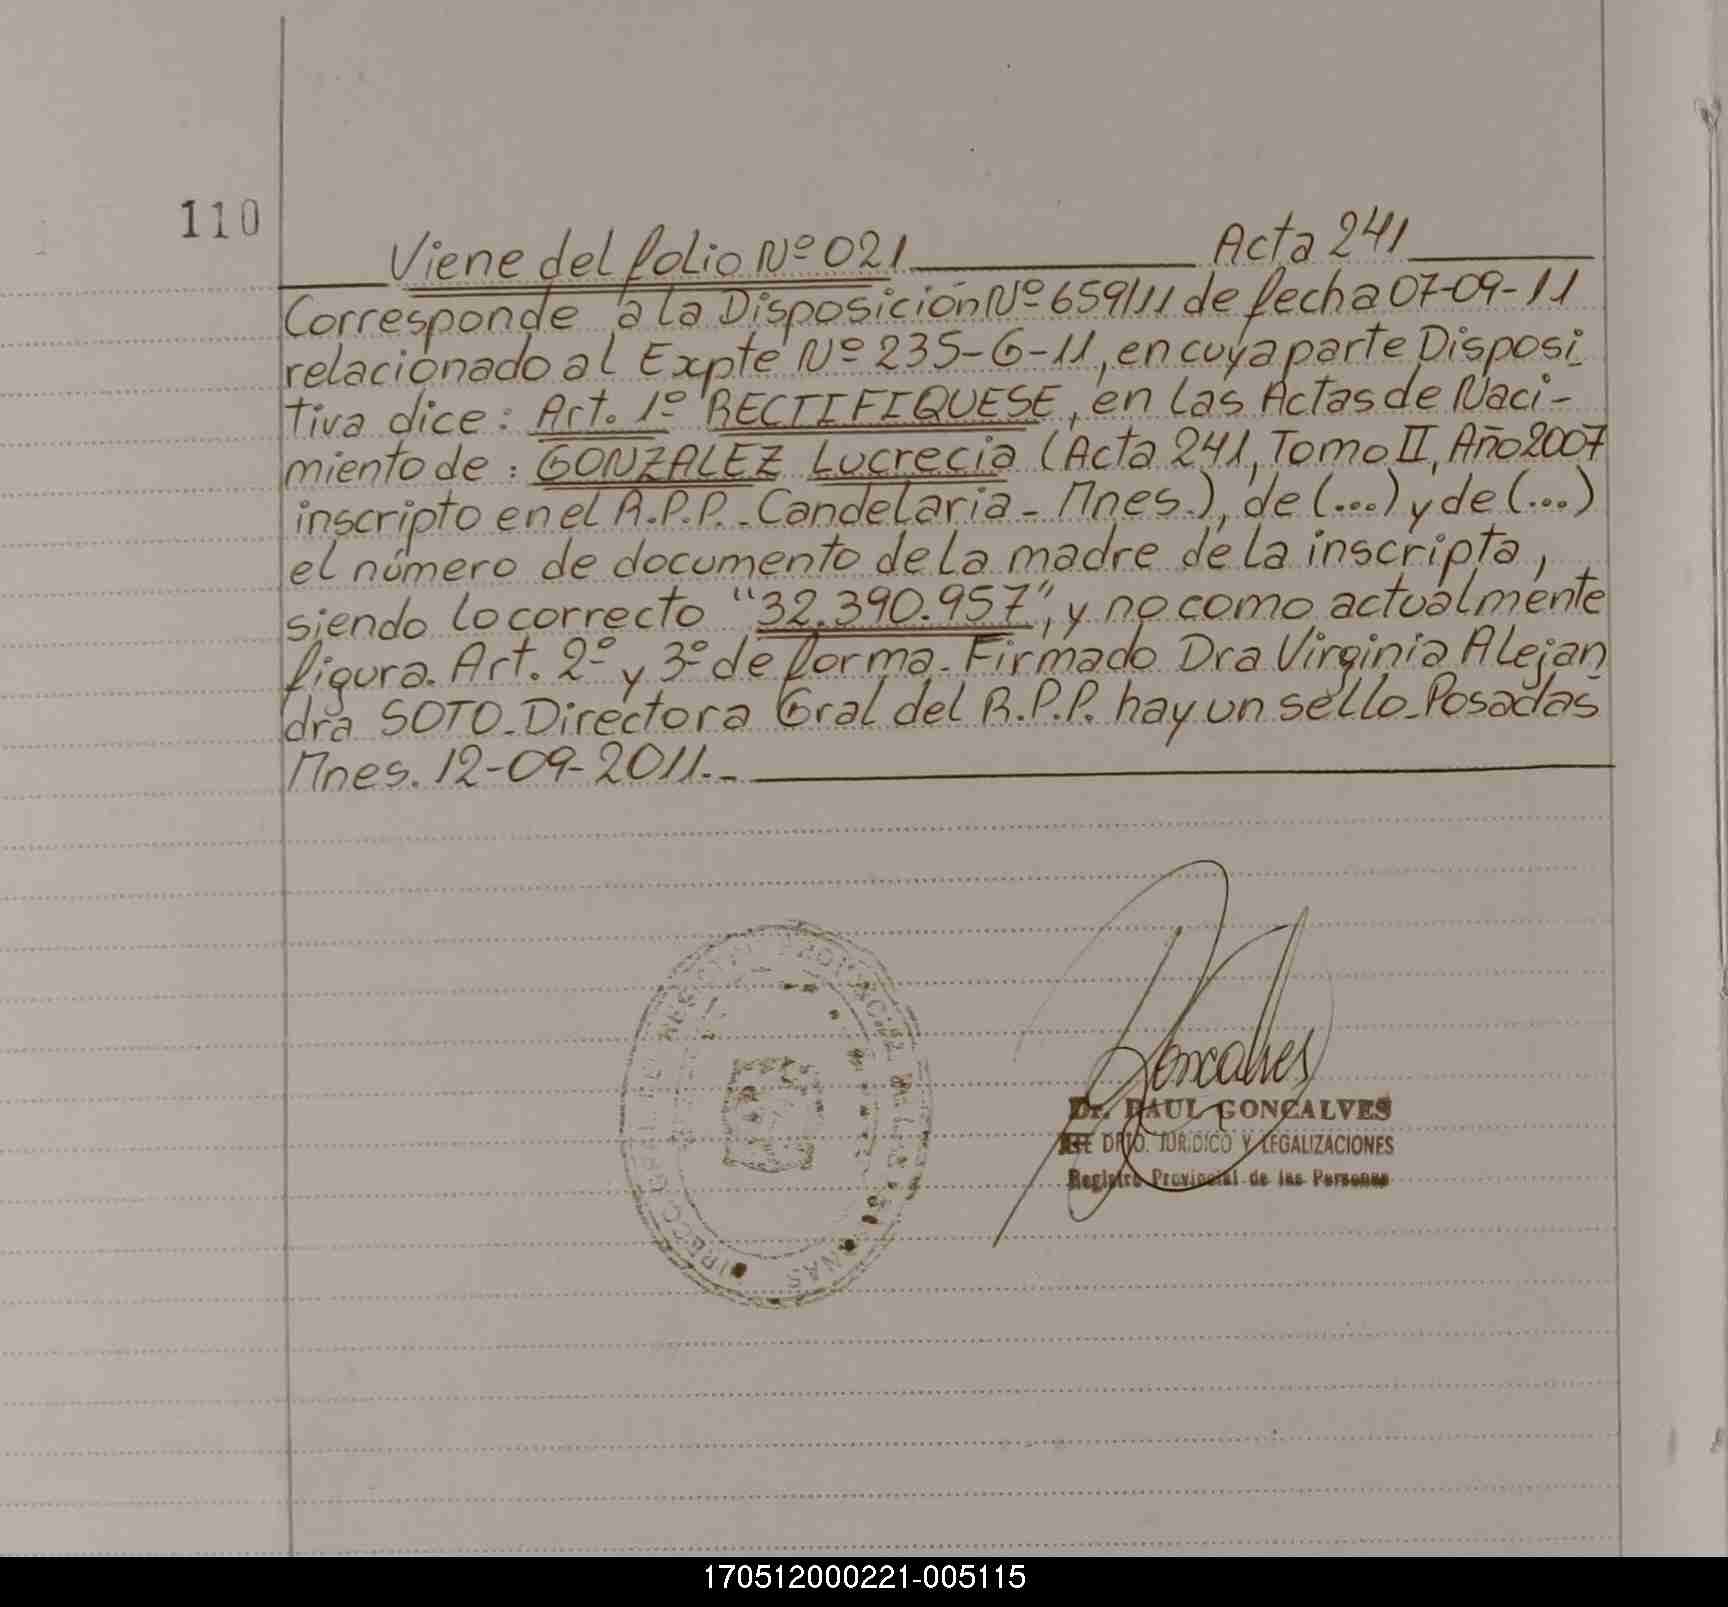 110
Viene del folio Nº 021 Acta 241
Corresponde a la Disposición Nº 659/11 de fecha 07-09-11
relacionado al Expte Nº 235-G-11, en cuya parte Disposi
tiva dice: Art. 1º RECTIFIQUESE, en las Actas de Naci-
miento de: GONZALEZ Lucrecia (Acta 241, Tomo II, Año 2007
inscripto en el R.P.P.-Candelaria- Mnes.), de (...) y de (...)
el número de documento de la madre de la inscripta,
siendo lo correcto "32.390.957", y no como actualmente
figura. Art. 2º y 3º de forma. Firmado Dra Virginia Alejan
dra SOTO-Directora Gral del R.P.P. hay un sello-Posadas
Mnes. 12-09-2011.-
Goncalves
Dr. RAUL GONCALVES
JEFE DPTO. JURIDICO Y LEGALIZACIONES
Registro Provincial de las Personas
170512000221-005115